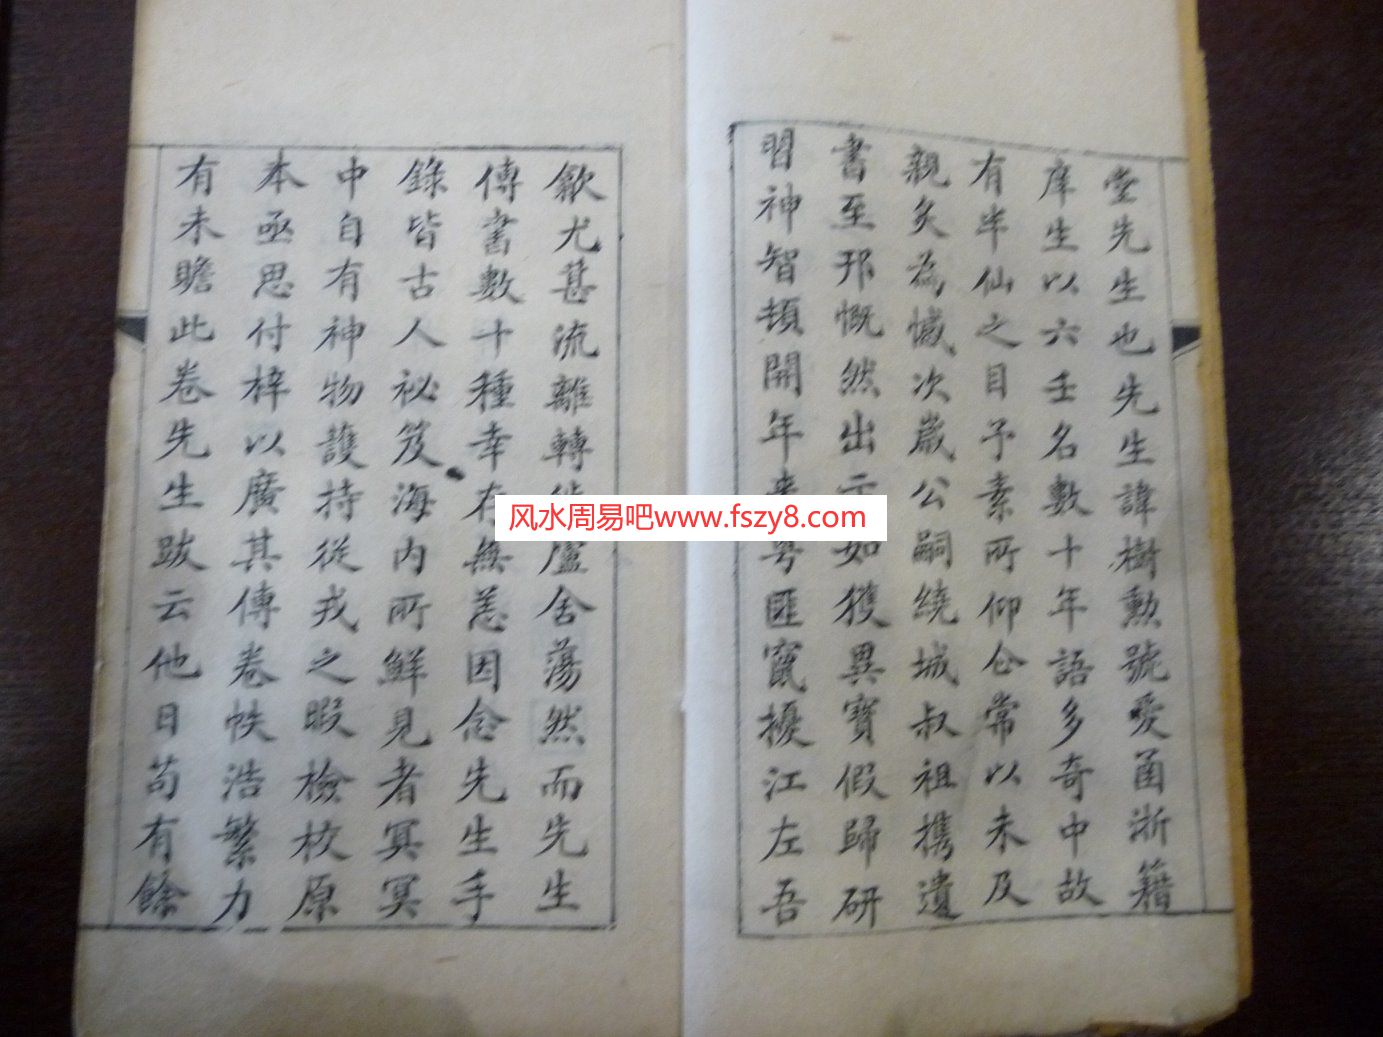 堂先生也先生諱樹勲號愛函浙籍
庠生以六壬名數十年語多奇中故
有半仙之目予素所仰仝常以未及
親炙為憾次嵗公嗣繞城叔祖携遺
書至邗慨然出示如獲異寶假歸研
習神智頓開年来粤匪竄擾江左吾
歙尤甚流離轉徙廬舍蕩然而先生
傳書數十種幸存無恙因念先生手
錄皆古人祕笈海内所鮮見者冥冥
中自有神物護持從戎之暇檢校原
本亟思付梓以廣其傳卷帙浩繁力
有未贍此卷先生跋云他日苟有餘
风水周易吧www.fszy8.com